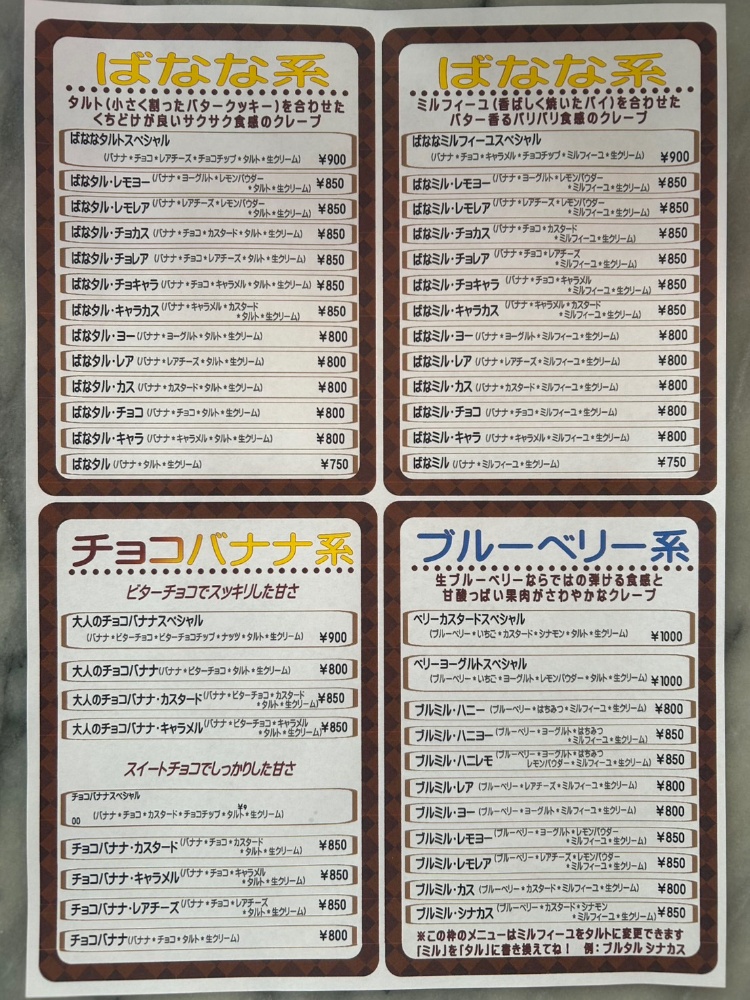 ばなな系
タルト(小さく割ったバタークッキー)を合わせた
くちどけが良いサクサク食感のクレープ
ばななタルトスペシャル
(バナナ*チョコ*レアチーズ*チョコチップ*タルト*生クリーム) ¥900
ばなタル・レモヨー(バナナ*ヨーグルト*レモンパウダー
*タルト*生クリーム) ¥850
ばなタル・レモレア(バナナ*レアチーズ*レモンパウダー
*タルト*生クリーム) ¥850
ばなタル・チョカス(バナナ*チョコ*カスタード*タルト*生クリーム) ¥850
ばなタル・チョレア(バナナ*チョコ*レアチーズ*タルト*生クリーム) ¥850
ばなタル・チョキャラ(バナナ*チョコ*キャラメル*タルト*生クリーム) ¥850
ばなタル・キャラカス(バナナ*キャラメル*カスタード
*タルト*生クリーム) ¥850
ばなタル・ヨー(バナナ*ヨーグルト*タルト*生クリーム) ¥800
ばなタル・レア(バナナ*レアチーズ*タルト*生クリーム) ¥800
ばなタル・カス(バナナ*カスタード*タルト*生クリーム) ¥800
ばなタル・チョコ(バナナ*チョコ*タルト*生クリーム) ¥800
ばなタル・キャラ(バナナ*キャラメル*タルト*生クリーム) ¥800
ばなタル(バナナ*タルト*生クリーム) ¥750
ばなな系
ミルフィーユ(香ばしく焼いたパイ)を合わせた
バター香るパリパリ食感のクレープ
ばななミルフィーユスペシャル
(バナナ*チョコ*キャラメル*チョコチップ*ミルフィーユ*生クリーム) ¥900
ばなミル・レモヨー(バナナ*ヨーグルト*レモンパウダー
*ミルフィーユ*生クリーム) ¥850
ばなミル・レモレア(バナナ*レアチーズ*レモンパウダー
*ミルフィーユ*生クリーム) ¥850
ばなミル・チョカス(バナナ*チョコ*カスタード
*ミルフィーユ*生クリーム) ¥850
ばなミル・チョレア(バナナ*チョコ*レアチーズ
*ミルフィーユ*生クリーム) ¥850
ばなミル・チョキャラ(バナナ*チョコ*キャラメル
*ミルフィーユ*生クリーム) ¥850
ばなミル・キャラカス(バナナ*キャラメル*カスタード
*ミルフィーユ*生クリーム) ¥850
ばなミル・ヨー(バナナ*ヨーグルト*ミルフィーユ*生クリーム) ¥800
ばなミル・レア(バナナ*レアチーズ*ミルフィーユ*生クリーム) ¥800
ばなミル・カス(バナナ*カスタード*ミルフィーユ*生クリーム) ¥800
ばなミル・チョコ(バナナ*チョコ*ミルフィーユ*生クリーム) ¥800
ばなミル・キャラ(バナナ*キャラメル*ミルフィーユ*生クリーム) ¥800
ばなミル(バナナ*ミルフィーユ*生クリーム) ¥750
チョコバナナ系
ビターチョコでスッキリした甘さ
大人のチョコバナナスペシャル
(バナナ*ビターチョコ*ビターチョコチップ*ナッツ*タルト*生クリーム) ¥900
大人のチョコバナナ(バナナ*ビターチョコ*タルト*生クリーム) ¥800
大人のチョコバナナ・カスタード(バナナ*ビターチョコ*カスタード
*タルト*生クリーム) ¥850
大人のチョコバナナ・キャラメル(バナナ*ビターチョコ*キャラメル
*タルト*生クリーム) ¥850
スイートチョコでしっかりした甘さ
チョコバナナスペシャル
¥9
(バナナ*チョコ*カスタード*チョコチップ*タルト*生クリーム)
00
チョコバナナ・カスタード(バナナ*チョコ*カスタード
*タルト*生クリーム) ¥850
チョコバナナ・キャラメル(バナナ*チョコ*キャラメル
*タルト*生クリーム) ¥850
チョコバナナ・レアチーズ(バナナ*チョコ*レアチーズ
*タルト*生クリーム) ¥850
チョコバナナ(バナナ*チョコ*タルト*生クリーム) ¥800
ブルーベリー系
生ブルーベリーならではの弾ける食感と
甘酸っぱい果肉がさわやかなクレープ
ベリーカスタードスペシャル
(ブルーベリー*いちご*カスタード*シナモン*タルト*生クリーム) ¥1000
ベリーヨーグルトスペシャル
(ブルーベリー*いちご*ヨーグルト*レモンパウダー*タルト*生クリーム) ¥1000
ブルミル・ハニー(ブルーベリー*はちみつ*ミルフィーユ*生クリーム) ¥800
ブルミル・ハニヨー(ブルーベリー*ヨーグルト*はちみつ
*ミルフィーユ*生クリーム) ¥850
ブルミル・ハニレモ(ブルーベリー*ヨーグルト*はちみつ
レモンパウダー*ミルフィーユ*生クリーム) ¥850
ブルミル・レア(ブルーベリー*レアチーズ*ミルフィーユ*生クリーム) ¥800
ブルミル・ヨー(ブルーベリー*ヨーグルト*ミルフィーユ*生クリーム) ¥800
ブルミル・レモヨー(ブルーベリー*ヨーグルト*レモンパウダー
*ミルフィーユ*生クリーム) ¥850
ブルミル・レモレア(ブルーベリー*レアチーズ*レモンパウダー
*ミルフィーユ*生クリーム) ¥850
ブルミル・カス(ブルーベリー*カスタード*ミルフィーユ*生クリーム) ¥800
ブルミル・シナカス(ブルーベリー*カスタード*シナモン
*ミルフィーユ*生クリーム) ¥850
※この枠のメニューはミルフィーユをタルトに変更できます
「ミル」を「タル」に書き換えてね! 例:ブルタル シナカス